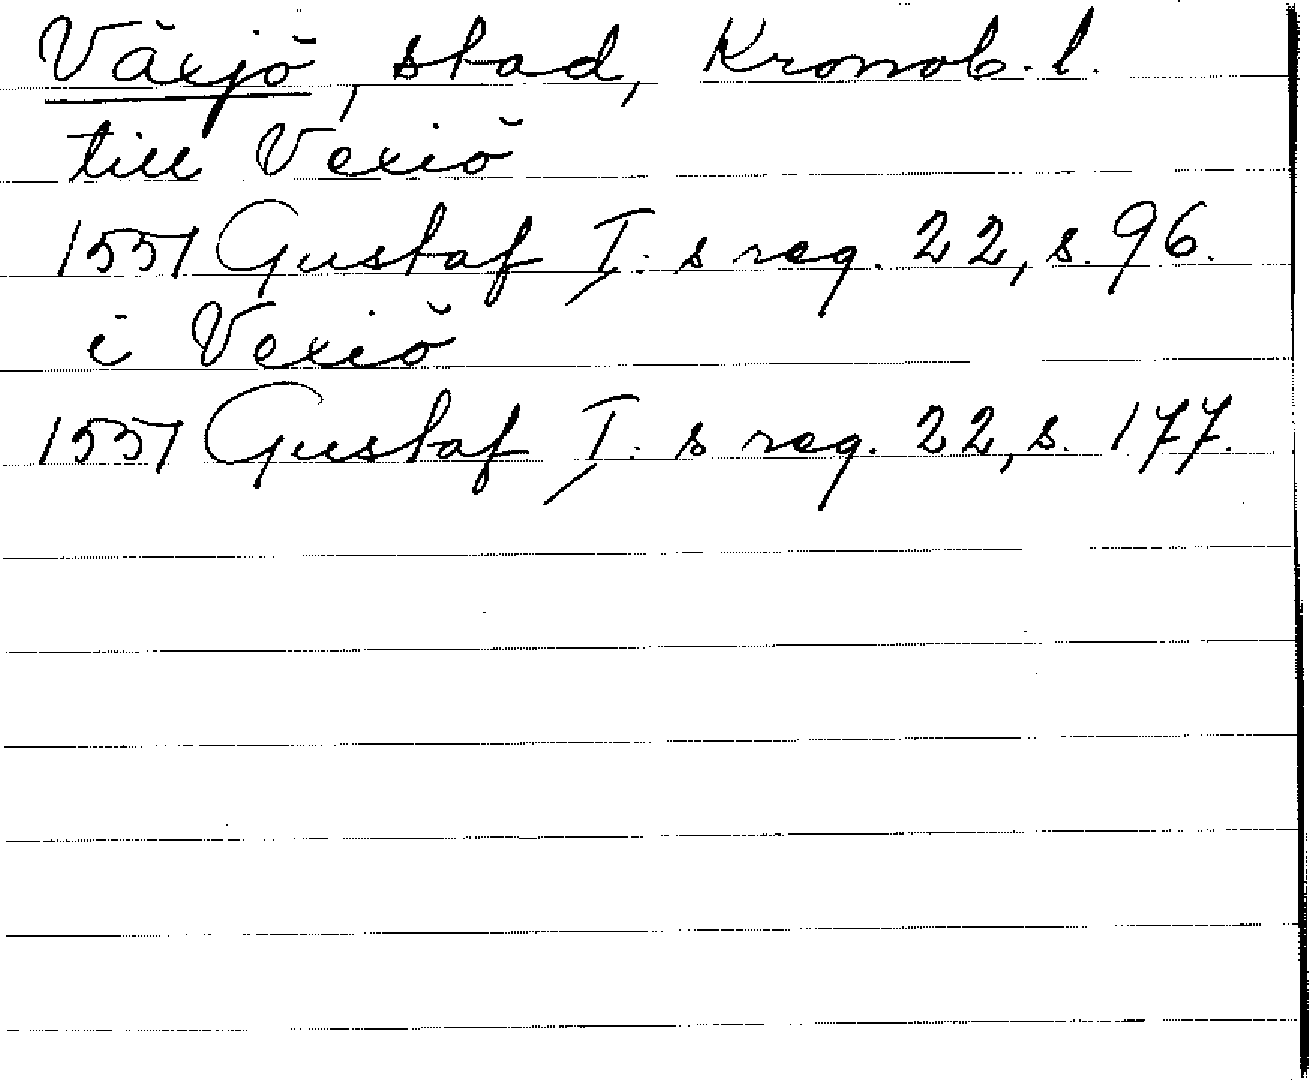 Växjö, stad, Kronob. l.
till Vexiö
1551 Gustaf I:s reg. 22, s. 96.
i Vexiö
1551 Gustaf I:s reg. 22, s. 177.